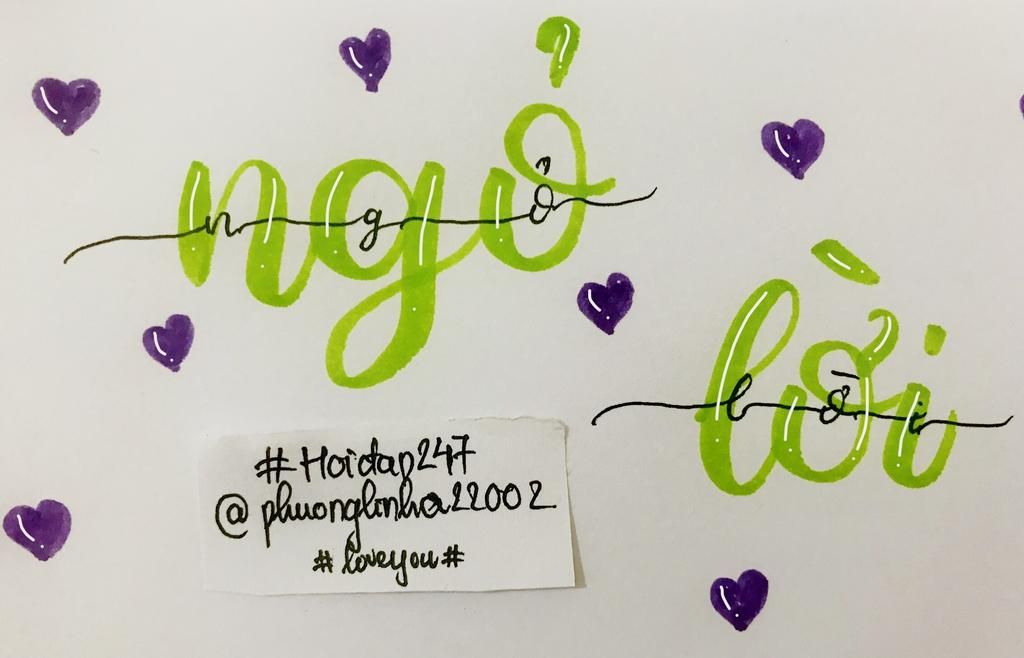 ngỏ
ngỏ
lời
lời
#Hoidap247
@phuonglinha22002
#loveyou#